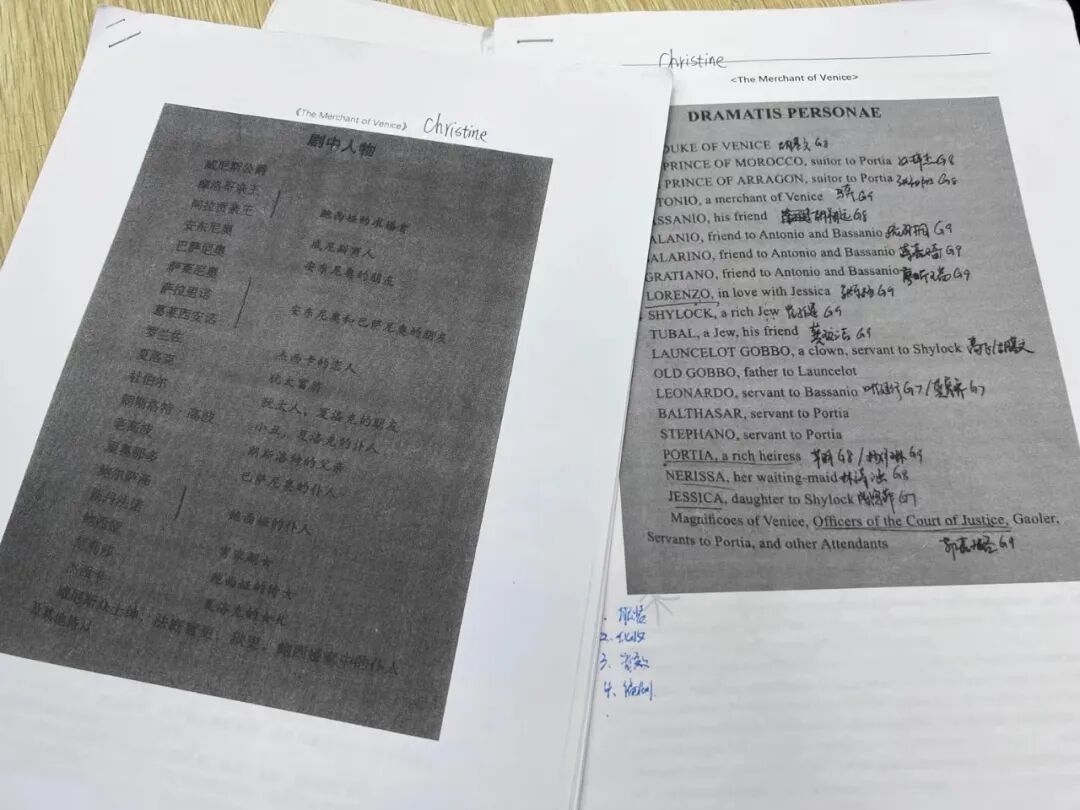 《The Merchant of Venice》 Christine
剧中人物
威尼斯公爵
摩洛哥亲王
阿拉贡亲王 鲍西娅的求婚者
安东尼奥 威尼斯商人
巴萨尼奥 安东尼奥的朋友
萨莱尼奥
萨拉里诺
葛莱西安诺 安东尼奥和巴萨尼奥的朋友
罗兰佐 杰西卡的恋人
夏洛克 犹太富翁
杜伯尔 犹太人，夏洛克的朋友
朗斯洛特·高波 小丑，夏洛克的仆人
老高波 朗斯洛特的父亲
里奥那多 巴萨尼奥的仆人
鲍尔萨泽
斯丹法诺 鲍西娅的仆人
鲍西娅 富家嗣女
尼莉莎 鲍西娅的侍女
杰西卡 夏洛克的女儿
威尼斯众士绅、法庭官吏、狱吏、鲍西娅家中的仆人
及其他侍从
Christine
<The Merchant of Venice>
DRAMATIS PERSONAE
DUKE OF VENICE G8
PRINCE OF MOROCCO, suitor to Portia G8
PRINCE OF ARRAGON, suitor to Portia G8
TONIO, a merchant of Venice G9
SSANIO, his friend G8
ALANIO, friend to Antonio and Bassanio G9
ALARINO, friend to Antonio and Bassanio G9
GRATIANO, friend to Antonio and Bassanio G9
LORENZO, in love with Jessica G9
SHYLOCK, a rich Jew G9
TUBAL, a Jew, his friend G9
LAUNCELOT GOBBO, a clown, servant to Shylock
OLD GOBBO, father to Launcelot
LEONARDO, servant to Bassanio G7 / G7
BALTHASAR, servant to Portia
STEPHANO, servant to Portia
PORTIA, a rich heiress G8 / G9
NERISSA, her waiting-maid G8
JESSICA, daughter to Shylock G7
Magnificoes of Venice, Officers of the Court of Justice, Gaoler,
Servants to Portia, and other Attendants G9
1. 服装
2. 化妆
3. 音效
4.